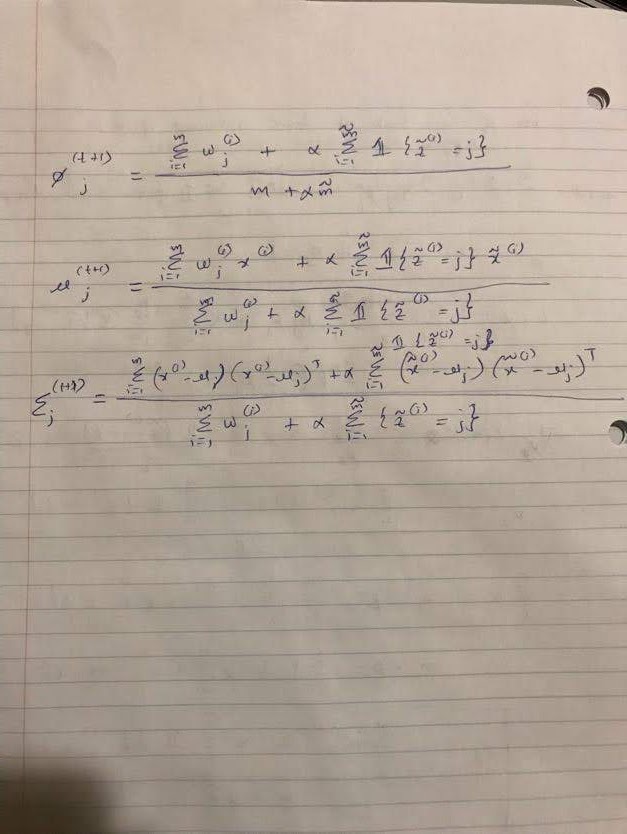 ϕ_j^{(t+1)} = \frac{\sum_{i=1}^{m} w_j^{(i)} + α \sum_{i=1}^{\tilde{m}} 𝟙 \{\tilde{z}^{(i)} = j\}}{m + α\tilde{m}}
μ_j^{(t+1)} = \frac{\sum_{i=1}^{m} w_j^{(i)} x^{(i)} + α \sum_{i=1}^{\tilde{m}} 𝟙 \{\tilde{z}^{(i)} = j\} \tilde{x}^{(i)}}{\sum_{i=1}^{m} w_j^{(i)} + α \sum_{i=1}^{\tilde{m}} 𝟙 \{\tilde{z}^{(i)} = j\}}
Σ_j^{(t+1)} = \frac{\sum_{i=1}^{m} (x^{(i)} - μ_j)(x^{(i)} - μ_j)^T + α \sum_{i=1}^{\tilde{m}} 𝟙 \{\tilde{z}^{(i)} = j\} (\tilde{x}^{(i)} - μ_j)(\tilde{x}^{(i)} - μ_j)^T}{\sum_{i=1}^{m} w_j^{(i)} + α \sum_{i=1}^{\tilde{m}} \{\tilde{z}^{(i)} = j\}}